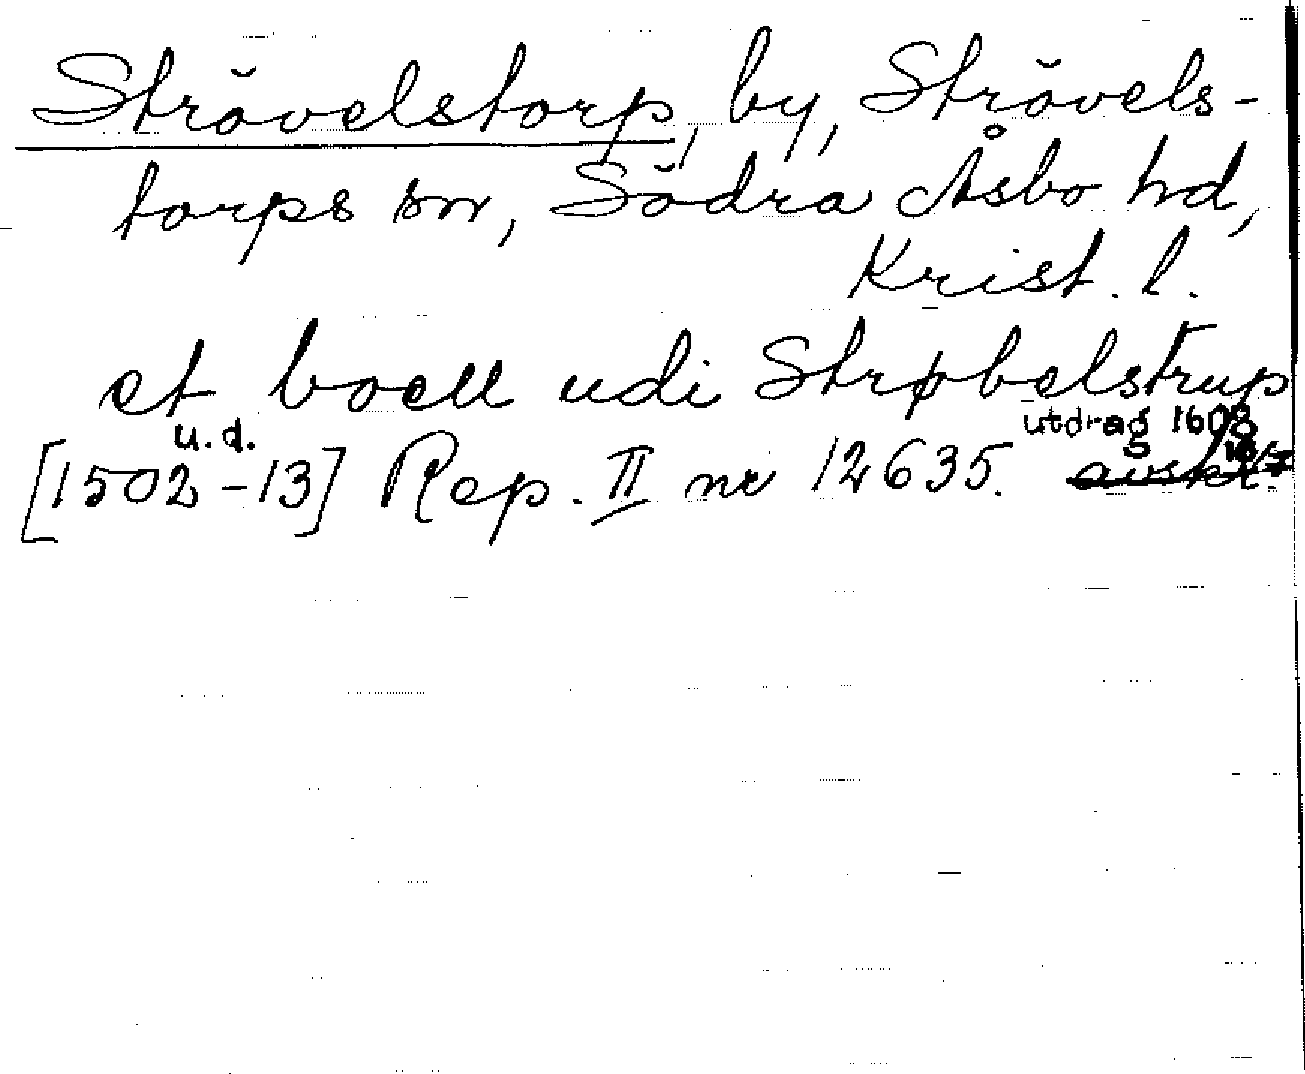 Strövelstorp, by, Strövels-
torps sn, Södra Åsbo hd,
Krist. l.
et boell udi Strøbelstrup
u.d. utdrag 1608
[1502-13] Rep. II nr 12635.